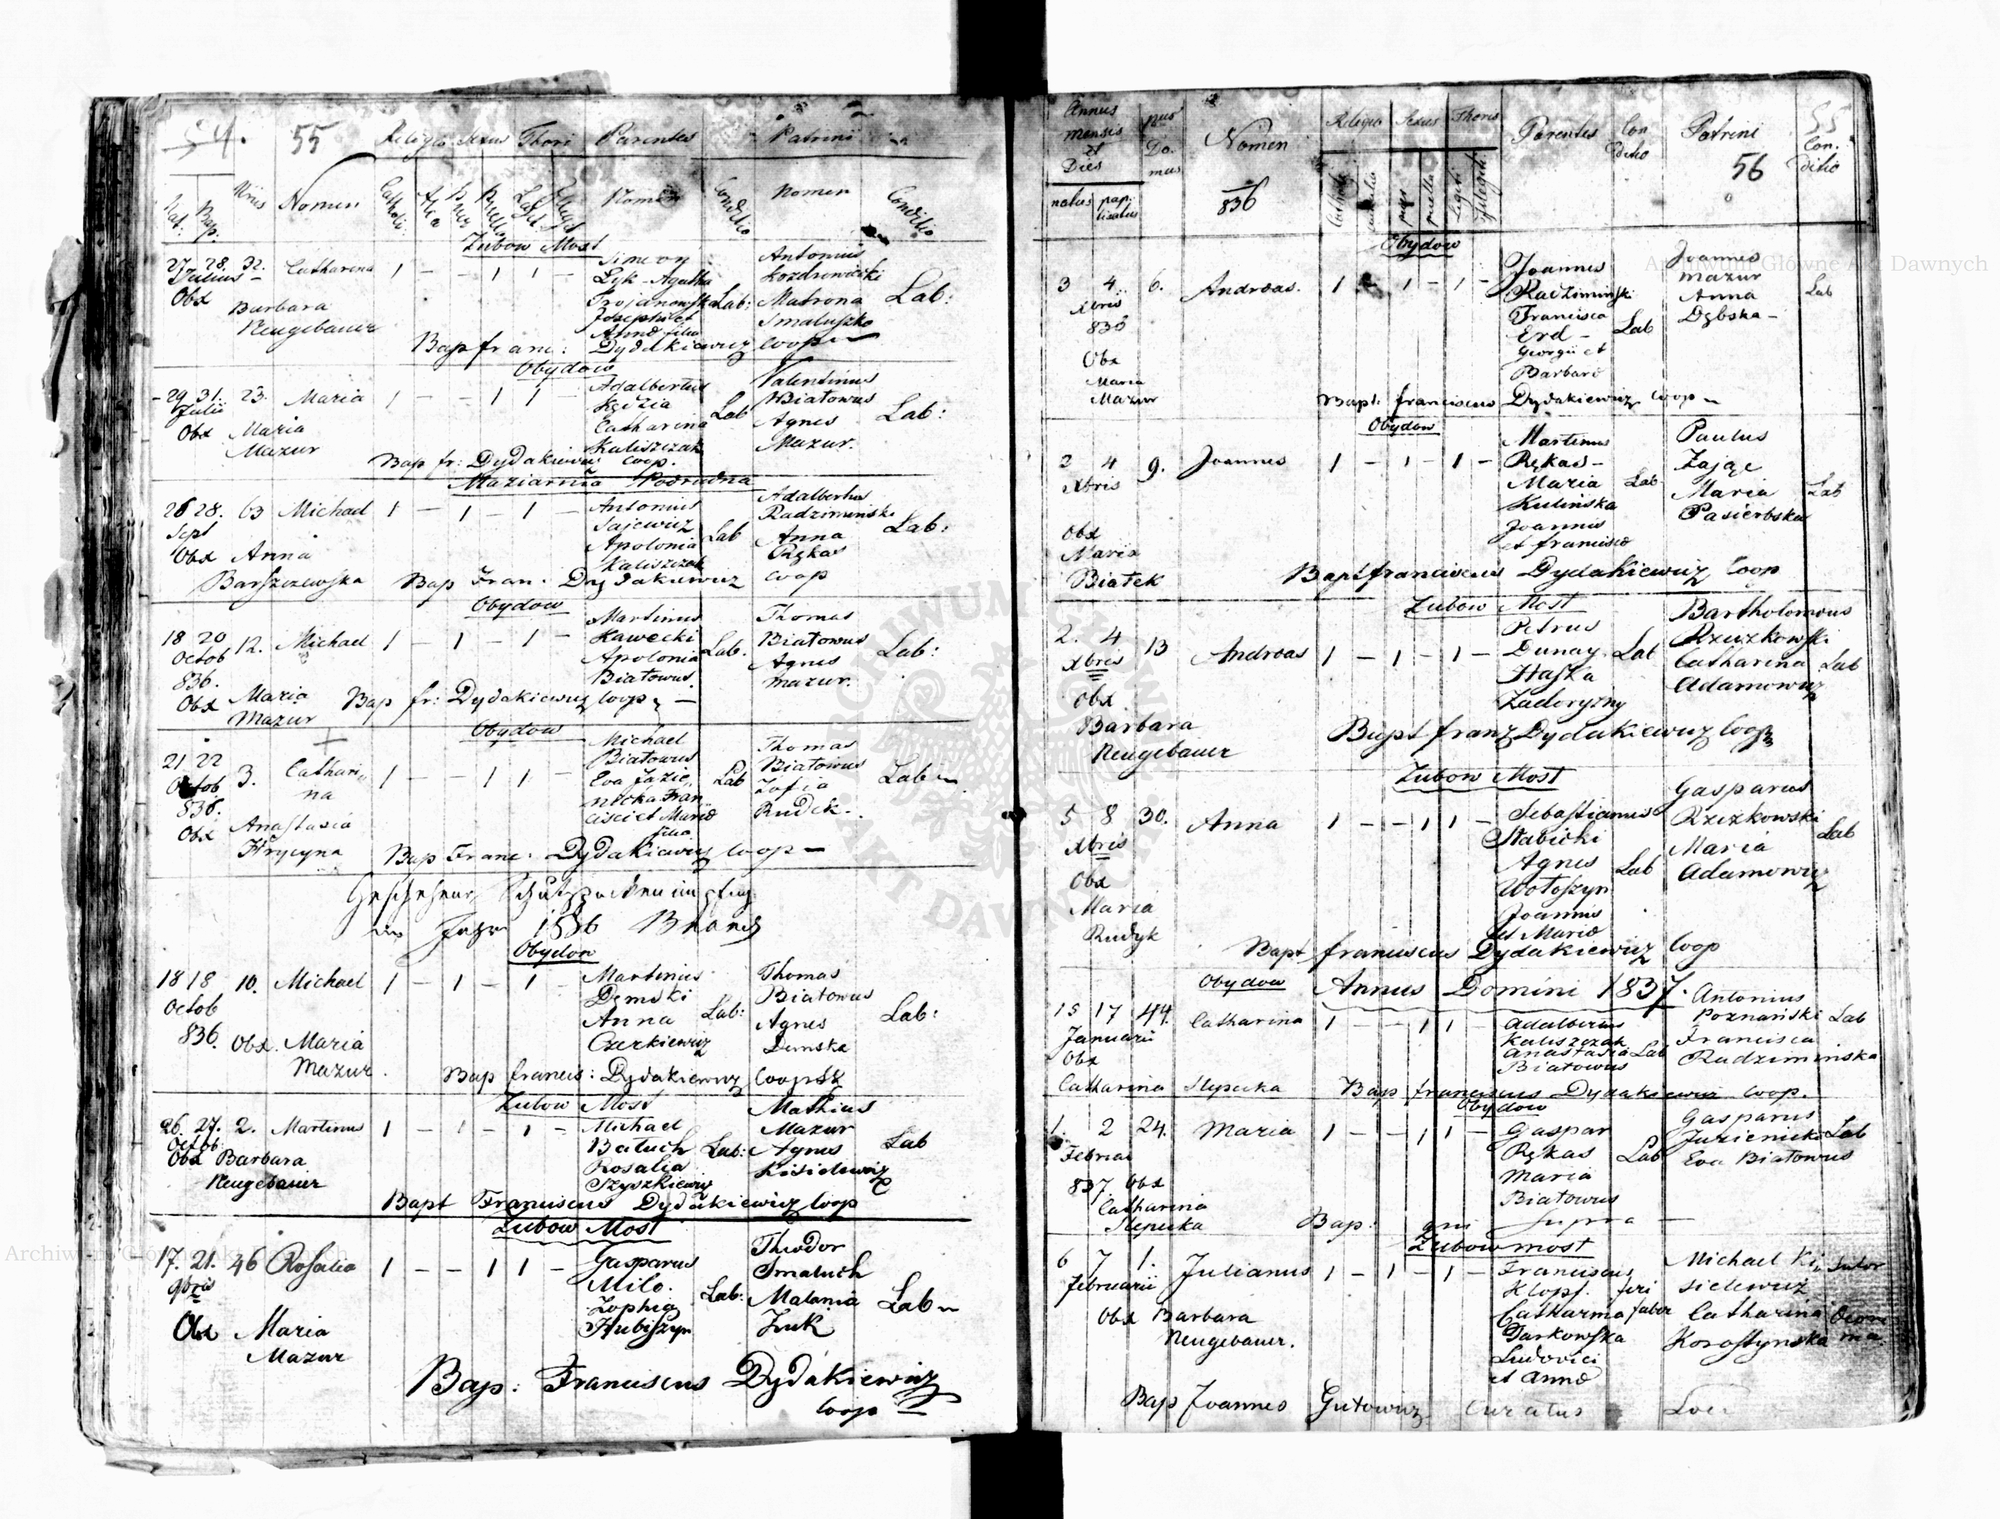 54. 55 Religio Sexus Thori Parentes Patrini
Nat. Bap. Nrus Nomen Catholica Alia Puer Puella Legit. Nomen Conditio Nomen Conditio
Zubow Most
27 28. 32. Catharina 1 – – 1 1 – Simeon Antonius
Julius Łyk Agatha Kozdrowicki
Obx Barbara Trojanowska Lab: Matrona Lab:
Neugebauer Josephi et Smaluszko
Anna filia
Bap franc: Dydakiewicz Coop
Obydow
29 31. 23. Maria 1 – – 1 1 – Adalbertus Valentinus
Julii Kędzia Lab Białowus Lab:
Obx Maria Catharina Agnes
Mazur Kaliszczak Mazur.
Bap fr: Dydakiewicz Coop.
Maziarnia Podrudna
26 28. 63 Michael 1 – 1 – 1 – Antonius Adalbertus
Sept Sajewicz Radziminski
Obx Anna Apolonia Lab Anna Lab:
Barszczewska Kaliszczak Rękas
Bap Fran: Dydakiewicz Coop
Obydow
18 20 12. Michael 1 – 1 – 1 – Martinus Thomas
Octob Kawecki Lab. Białowus Lab:
836. Apolonia Agnes
Obx Maria Białowus. Mazur.
Mazur Bap fr: Dydakiewicz Coop
Obydow
21 22 3. Cathari 1 – – 1 1 – Michael Thomas
Octob na Białowus Białowus
836. Eva Jazie Lab Zofia Lab
Obx Anastasia nicka Fran Rudek
Hrycyna cisci et Maria
filia
Bap Franc: Dydakiewicz Coop –
Geschehene Schutzpockenimpfung
im Jahr 1836
Obydow
18 18 10. Michael 1 – 1 – 1 – Martinus Thomas
Octob Dęmski Białowus
836. Anna Lab: Agnes Lab:
Obx. Maria Czerkiewicz Demska
Mazur. Bap francis: Dydakiewicz Coop
Zubow Most
26. 27. 2. Martinus 1 – 1 – 1 – Michael Mathias
Octob Batuch Lab: Mazur Lab
Obx Barbara Rosalia Agnes
Neugebauer Szyszkiewicz Kisielewicz
Bapt Franciscus Dydakiewicz Coop
Zubow Most
17. 21. 46 Rosalia 1 – – 1 1 – Gasparus Theodor
9bris Milo. Smaluch
Obx Maria Zophia Lab: Malania Lab
Mazur Hubiszyn Zuk
Bap: Franciscus Dydakiewicz
Coop
Annus Mensis et Dies Nrus Domus Nomen Religio Sexus Thoris Parentes Conditio Patrini 55. Conditio
natus baptisatus 836 puer puella 56
Obydow
3 4. 6. Andreas. 1 – 1 – 1 – Joannes Joannes
Xbris Radziminski Mazur Lab
836 Francisca Lab Anna
Obx Erd – Dębska –
Maria Georgii et
Mazur Barbara
Bapt: franciscus Dydakiewicz Coop
Obydow
2 4 9. Joannes 1 – 1 – 1 – Martinus Paulus
Xbris Rękas – Zając
Obx Maria Lab Maria Lab
Maria Kulinska Pasierbska
Białek Joannis
et francisca
Bapt franciscus Dydakiewicz Coop
Zubow Most
2. 4. 13 Andreas 1 – 1 – 1 – Petrus Bartholomeus
Xbris Dunay Lab Rzeszkowski
Obx Hafka Catharina Lab
Barbara Zadoryzny Adamowicz
Neugebauer Bapt franz Dydakiewicz Coop
Zubow Most
5 8 30. Anna 1 – – 1 1 – Sebastianus Gasparus
Xbris Stabicki Rzeżkowski
Obx Agnes Lab Maria Lab
Maria Wołoszyn Adamowicz
Rudyk Joannis
et Maria
Bapt franciscus Dydakiewicz Coop
Obydow Annus Domini 1837.
15 17 44. Catharina 1 – – 1 1 Adalbertus Antonius
Januarii Kaliszczak Poznański Lab
Obx Anastasia Lab Francisca
Catharina Slepecka Białowus Radziminska
Bap franciscus Dydakiewicz Coop.
Obydow
1. 2 24. Maria 1 – – 1 1 – Gaspar Gasparus
Februar Rękas Lab Jazienicki Lab
837. Obx Maria Eva Białowus
Catharina Białowus
Slepecka Bap: qui Supra –
Zubow most
6 7 1. Julianus 1 – 1 – 1 – Franciscus Michael Ki Sutor
Februarii Klopf. fari sielewicz
Obx Barbara Catharina faber Catharina
Neugebauer. Darkowska Korostynska
Ludovici
et Anna
Bap Joannes Gutowicz Curatus Loci
Archiwum Główne Akt Dawnych